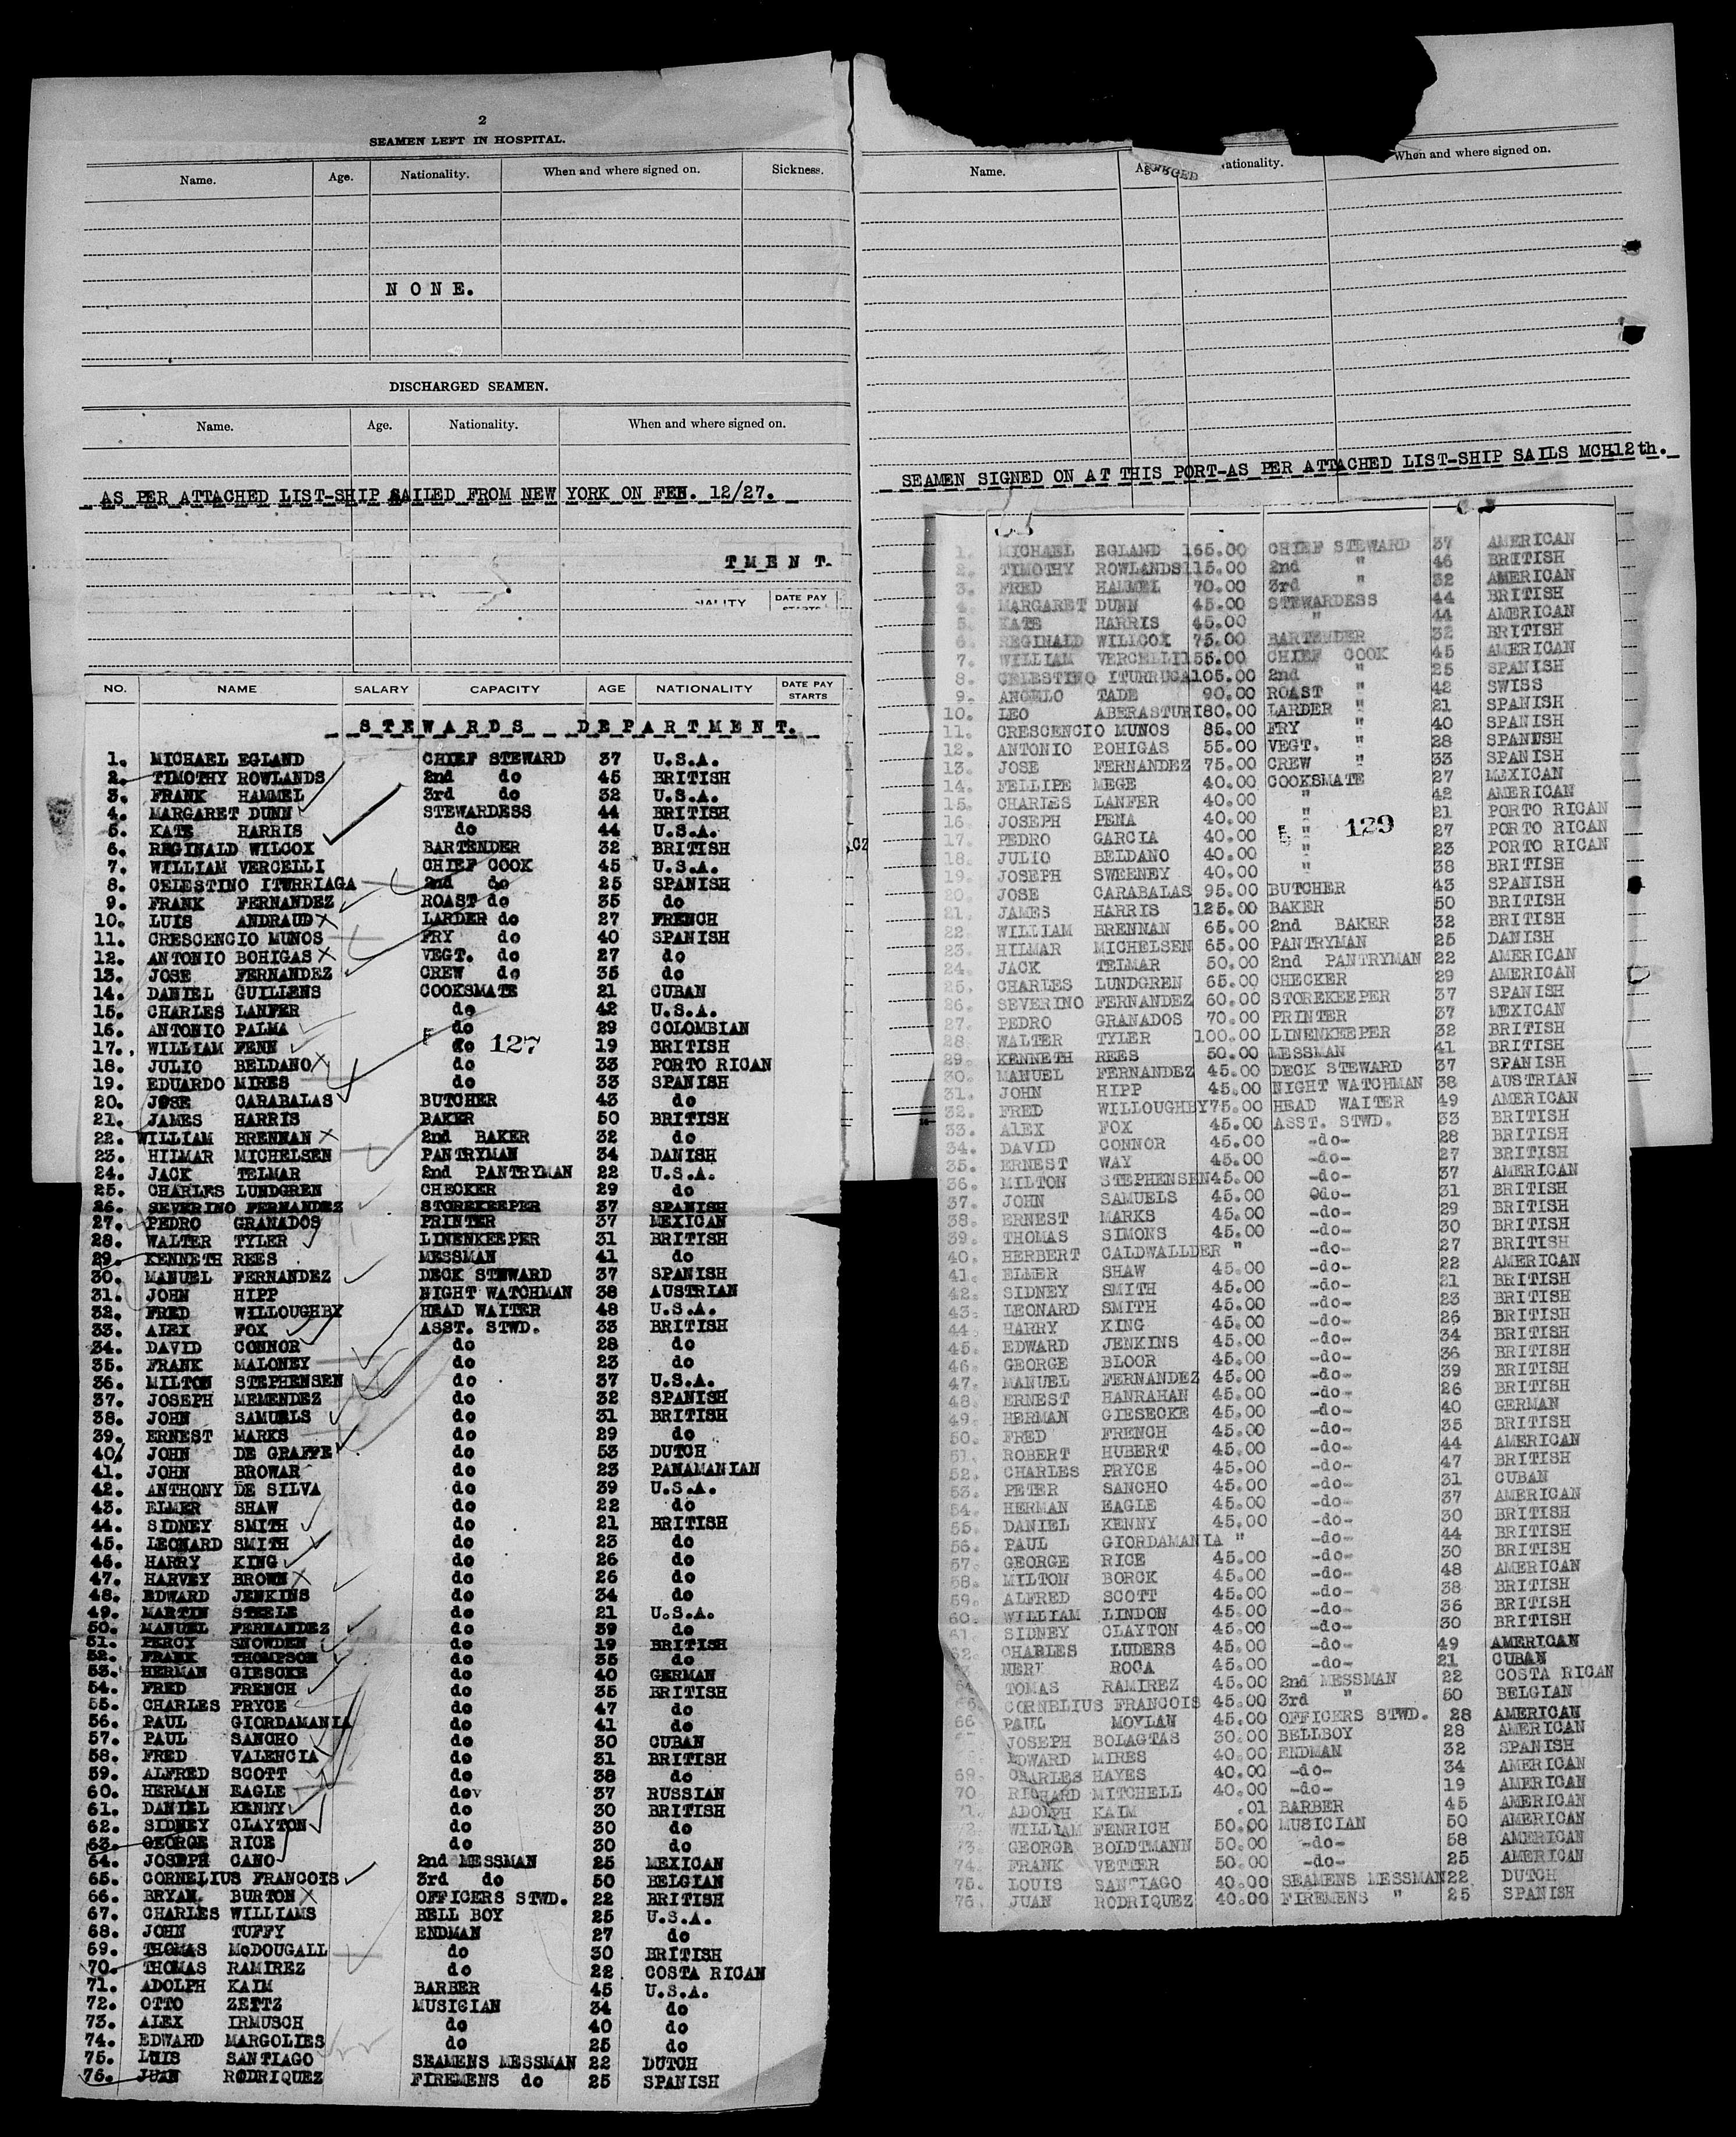 2
SEAMEN LEFT IN HOSPITAL.
Name. Age. Nationality. When and where signed on. Sickness.
NONE.
DISCHARGED SEAMEN.
Name. Age. Nationality. When and where signed on.
AS PER ATTACHED LIST-SHIP SAILED FROM NEW YORK ON FEB. 12/27.
TMENT.
DATE PAY
NO. NAME SALARY CAPACITY AGE NATIONALITY DATE PAY STARTS
STEWARDS DEPARTMENT.
1. MICHAEL EGLAND CHIEF STEWARD 37 U.S.A.
2. TIMOTHY ROWLANDS 2nd do 45 BRITISH
3. FRANK HAMMEL 3rd do 32 U.S.A.
4. MARGARET DUNN STEWARDESS 44 BRITISH
5. KATE HARRIS do 44 U.S.A.
6. REGINALD WILCOX BARTENDER 32 BRITISH
7. WILLIAM VERCELLI CHIEF COOK 45 U.S.A.
8. CELESTINO ITURRIAGA 2nd do 25 SPANISH
9. FRANK FERNANDEZ ROAST do 35 do
10. LUIS ANDRAUD LARDER do 27 FRENCH
11. CRESCENCIO MUNOS FRY do 40 SPANISH
12. ANTONIO BOHIGAS VEGT. do 27 do
13. JOSE FERNANDEZ CREW do 35 do
14. DANIEL GUILLENS COOKSMATE 21 CUBAN
15. CHARLES LANFER do 42 U.S.A.
16. ANTONIO PALMA do 29 COLOMBIAN
17. WILLIAM FENN do 127 19 BRITISH
18. JULIO BELDANO do 33 PORTO RICAN
19. EDUARDO MIRES do 33 SPANISH
20. JOSE CARABALAS BUTCHER 43 do
21. JAMES HARRIS BAKER 50 BRITISH
22. WILLIAM BRENNAN 2nd BAKER 32 do
23. HILMAR MICHELSEN PANTRYMAN 34 DANISH
24. JACK TELMAR 2nd PANTRYMAN 22 U.S.A.
25. CHARLES LUNDGREN CHECKER 29 do
26. SEVERINO FERNANDEZ STOREKEEPER 37 SPANISH
27. PEDRO GRANADOS PRINTER 37 MEXICAN
28. WALTER TYLER LINENKEEPER 31 BRITISH
29. KENNETH REES MESSMAN 41 do
30. MANUEL FERNANDEZ DECK STEWARD 37 SPANISH
31. JOHN HIPP NIGHT WATCHMAN 38 AUSTRIAN
32. FRED WILLOUGHBY HEAD WAITER 48 U.S.A.
33. ALEX FOX ASST. STWD. 33 BRITISH
34. DAVID CONNOR do 28 do
35. FRANK MALONEY do 23 do
36. MILTON STEPHENSEN do 37 U.S.A.
37. JOSEPH MEMENDEZ do 32 SPANISH
38. JOHN SAMUELS do 31 BRITISH
39. ERNEST MARKS do 29 do
40. JOHN DE GRAFFE do 53 DUTCH
41. JOHN BROWAR do 23 PANAMANIAN
42. ANTHONY DE SILVA do 39 U.S.A.
43. ELMER SHAW do 22 do
44. SIDNEY SMITH do 21 BRITISH
45. LEONARD SMITH do 23 do
46. HARRY KING do 26 do
47. HARVEY BROWN do 26 do
48. EDWARD JENKINS do 34 do
49. MARTIN STEELE do 21 U.S.A.
50. MANUEL FERNANDEZ do 39 do
51. PERCY SNOWDEN do 19 BRITISH
52. FRANK THOMPSON do 35 do
53. HERMAN GIESCKE do 40 GERMAN
54. FRED FRENCH do 35 BRITISH
55. CHARLES PRYCE do 47 do
56. PAUL GIORDAMANIA do 41 do
57. PAUL SANCHO do 30 CUBAN
58. FRED VALENCIA do 31 BRITISH
59. ALFRED SCOTT do 38 do
60. HERMAN EAGLE do 37 RUSSIAN
61. DANIEL KENNY do 30 BRITISH
62. SIDNEY CLAYTON do 30 do
63. GEORGE RICE do 30 do
64. JOSEPH CANO 2nd MESSMAN 25 MEXICAN
65. CORNELIUS FRANCOIS 3rd do 50 BELGIAN
66. BRYAN BURTON OFFICERS STWD. 22 BRITISH
67. CHARLES WILLIAMS BELL BOY 25 U.S.A.
68. JOHN TUFFY ENDMAN 27 do
69. THOMAS McDOUGALL do 30 BRITISH
70. THOMAS RAMIREZ do 22 COSTA RICAN
71. ADOLPH KAIM BARBER 45 U.S.A.
72. OTTO ZEITZ MUSICIAN 34 do
73. ALEX IRMUSCH do 40 do
74. EDWARD MARGOLIES do 25 do
75. LUIS SANTIAGO SEAMENS MESSMAN 22 DUTCH
76. JUAN RODRIQUEZ FIREMENS do 25 SPANISH
Name. Nationality. When and where signed on.
SEAMEN SIGNED ON AT THIS PORT-AS PER ATTACHED LIST-SHIP SAILS MCH12th.
1. MICHAEL EGLAND 165.00 CHIEF STEWARD 37 AMERICAN
2. TIMOTHY ROWLANDS 115.00 2nd " 46 BRITISH
3. FRED HAMMEL 70.00 3rd " 32 AMERICAN
4. MARGARET DUNN 45.00 STEWARDESS 44 BRITISH
5. KATE HARRIS 45.00 " 44 AMERICAN
6. REGINALD WILLCOX 75.00 BARTENDER 32 BRITISH
7. WILLIAM VERCELLI 155.00 CHIEF COOK 45 AMERICAN
8. CELESTINO ITURRUGA 105.00 2nd " 25 SPANISH
9. ANGELO TADE 90.00 ROAST " 42 SWISS
10. LEO ABERASTURI 80.00 LARDER " 21 SPANISH
11. CRESCENCIO MUNOS 85.00 FRY " 40 SPANISH
12. ANTONIO BOHIGAS 55.00 VEGT. " 28 SPANISH
13. JOSE FERNANDEZ 75.00 CREW " 33 SPANISH
14. FELLIPE MEGE 40.00 COOKSMATE 27 MEXICAN
15. CHARLES LANFER 40.00 " 42 AMERICAN
16. JOSEPH PENA 40.00 " 21 PORTO RICAN
17. PEDRO GARCIA 40.00 " 129 27 PORTO RICAN
18. JULIO BELDANO 40.00 " 23 PORTO RICAN
19. JOSEPH SWEENEY 40.00 " 38 BRITISH
20. JOSE CARABALAS 95.00 BUTCHER 43 SPANISH
21. JAMES HARRIS 125.00 BAKER 50 BRITISH
22. WILLIAM BRENNAN 65.00 2nd BAKER 32 BRITISH
23. HILMAR MICHELSEN 65.00 PANTRYMAN 25 DANISH
24. JACK TELMAR 50.00 2nd PANTRYMAN 22 AMERICAN
25. CHARLES LUNDGREN 65.00 CHECKER 29 AMERICAN
26. SEVERINO FERNANDEZ 60.00 STOREKEEPER 37 SPANISH
27. PEDRO GRANADOS 70.00 PRINTER 37 MEXICAN
28. WALTER TYLER 100.00 LINENKEEPER 32 BRITISH
29. KENNETH REES 50.00 MESSMAN 41 BRITISH
30. MANUEL FERNANDEZ 45.00 DECK STEWARD 37 SPANISH
31. JOHN HIPP 45.00 NIGHT WATCHMAN 38 AUSTRIAN
32. FRED WILLOUGHBY 75.00 HEAD WAITER 49 AMERICAN
33. AlEX FOX 45.00 ASST. STWD. 33 BRITISH
34. DAVID CONNOR 45.00 -do- 28 BRITISH
35. ERNEST WAY 45.00 -do- 27 BRITISH
36. MILTON STEPHENSEN 45.00 -do- 37 AMERICAN
37. JOHN SAMUELS 45.00 0do- 31 BRITISH
38. ERNEST MARKS 45.00 -do- 29 BRITISH
39. THOMAS SIMONS 45.00 -do- 30 BRITISH
40. HERBERT CALDWALLDER " -do- 27 BRITISH
41. ELMER SHAW 45.00 -do- 22 AMERICAN
42. SIDNEY SMITH 45.00 -do- 21 BRITISH
43. LEONARD SMITH 45.00 -do- 23 BRITISH
44. HARRY KING 45.00 -do- 26 BRITISH
45. EDWARD JENKINS 45.00 -do- 34 BRITISH
46. GEORGE BLOOR 45.00 -do- 36 BRITISH
47. MANUEL FERNANDEZ 45.00 -do- 39 BRITISH
48. ERNEST HANRAHAN 45.00 -do- 26 BRITISH
49. HERMAN GIESECKE 45.00 -do- 40 GERMAN
50. FRED FRENCH 45.00 -do- 35 BRITISH
51. ROBERT HUBERT 45.00 -do- 44 AMERICAN
52. CHARLES PRYCE 45.00 -do- 47 BRITISH
53. PETER SANCHO 45.00 -do- 31 CUBAN
54. HERMAN EAGLE 45.00 -do- 37 AMERICAN
55. DANIEL KENNY 45.00 -do- 30 BRITISH
56. PAUL GIORDAMANIA " -do- 44 BRITISH
57. GEORGE RICE 45.00 -do- 30 BRITISH
58. MILTON BORCK 45.00 -do- 48 AMERICAN
59. ALFRED SCOTT 45.00 -do- 38 BRITISH
60. WILLIAM LINDON 45.00 -do- 36 BRITISH
61. SIDNEY CLAYTON 45.00 -do- 30 BRITISH
62. CHARLES LUDERS 45.00 -do- 49 AMERICAN
ROCA 45.00 -do- 21 CUBAN
TOMAS RAMIREZ 45.00 2nd MESSMAN 22 COSTA RICAN
CORNELIUS FRANCOIS 45.00 3rd " 50 BELGIAN
66. PAUL MOYLAN 45.00 OFFICERS STWD. 28 AMERICAN
JOSEPH BOLAGTAS 30.00 BELLBOY 28 AMERICAN
EDWARD MIRES 40.00 ENDMAN 32 SPANISH
69. CHARLES HAYES 40.00 -do- 34 AMERICAN
70. RICHARD MITCHELL 40.00 -do- 19 AMERICAN
71. ADOLPH KAIM .01 BARBER 45 AMERICAN
WILLIAM FENRICH 50.00 MUSICIAN 50 AMERICAN
73. GEORGE BOLDTMANN 50.00 -do- 58 AMERICAN
74. FRANK VETTER 50.00 -do- 25 AMERICAN
75. LOUIS SANTIAGO 40.00 SEAMENS MESSMAN 22 DUTCH
76. JUAN RODRIQUEZ 40.00 FIREMENS " 25 SPANISH